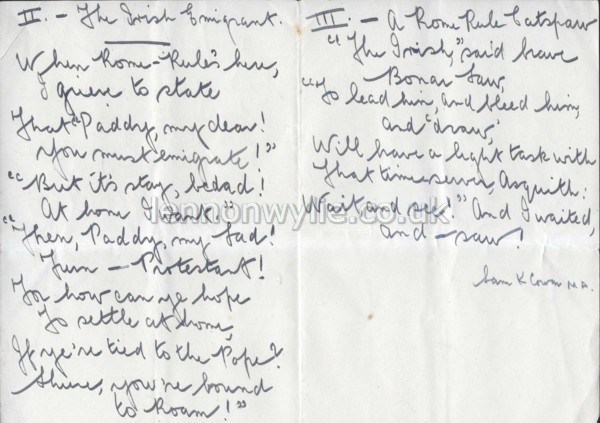 II. - The Irish Emigrant.
When Rome-Rule's here,
I grieve to state
That "Paddy, my dear!
You must emigrate!"
"But it's stay, bedad!
At home I want."
"Then, Paddy, my lad!
Turn - Protestant!
For how can ye hope
To settle at home,
If ye're tied to the Pope?
Shure, you're bound
to Roam!"
III. - A Rome Rule Catspaw
"The Irish," said brave
Bonar Law,
"To lead him, and bleed him,
and 'draw,'
Will have a light task with
That timeserver, Asquith:
Wait and see!" And I waited,
and - saw!
Sam K Cowan M.A.
lennonwylie.co.uk